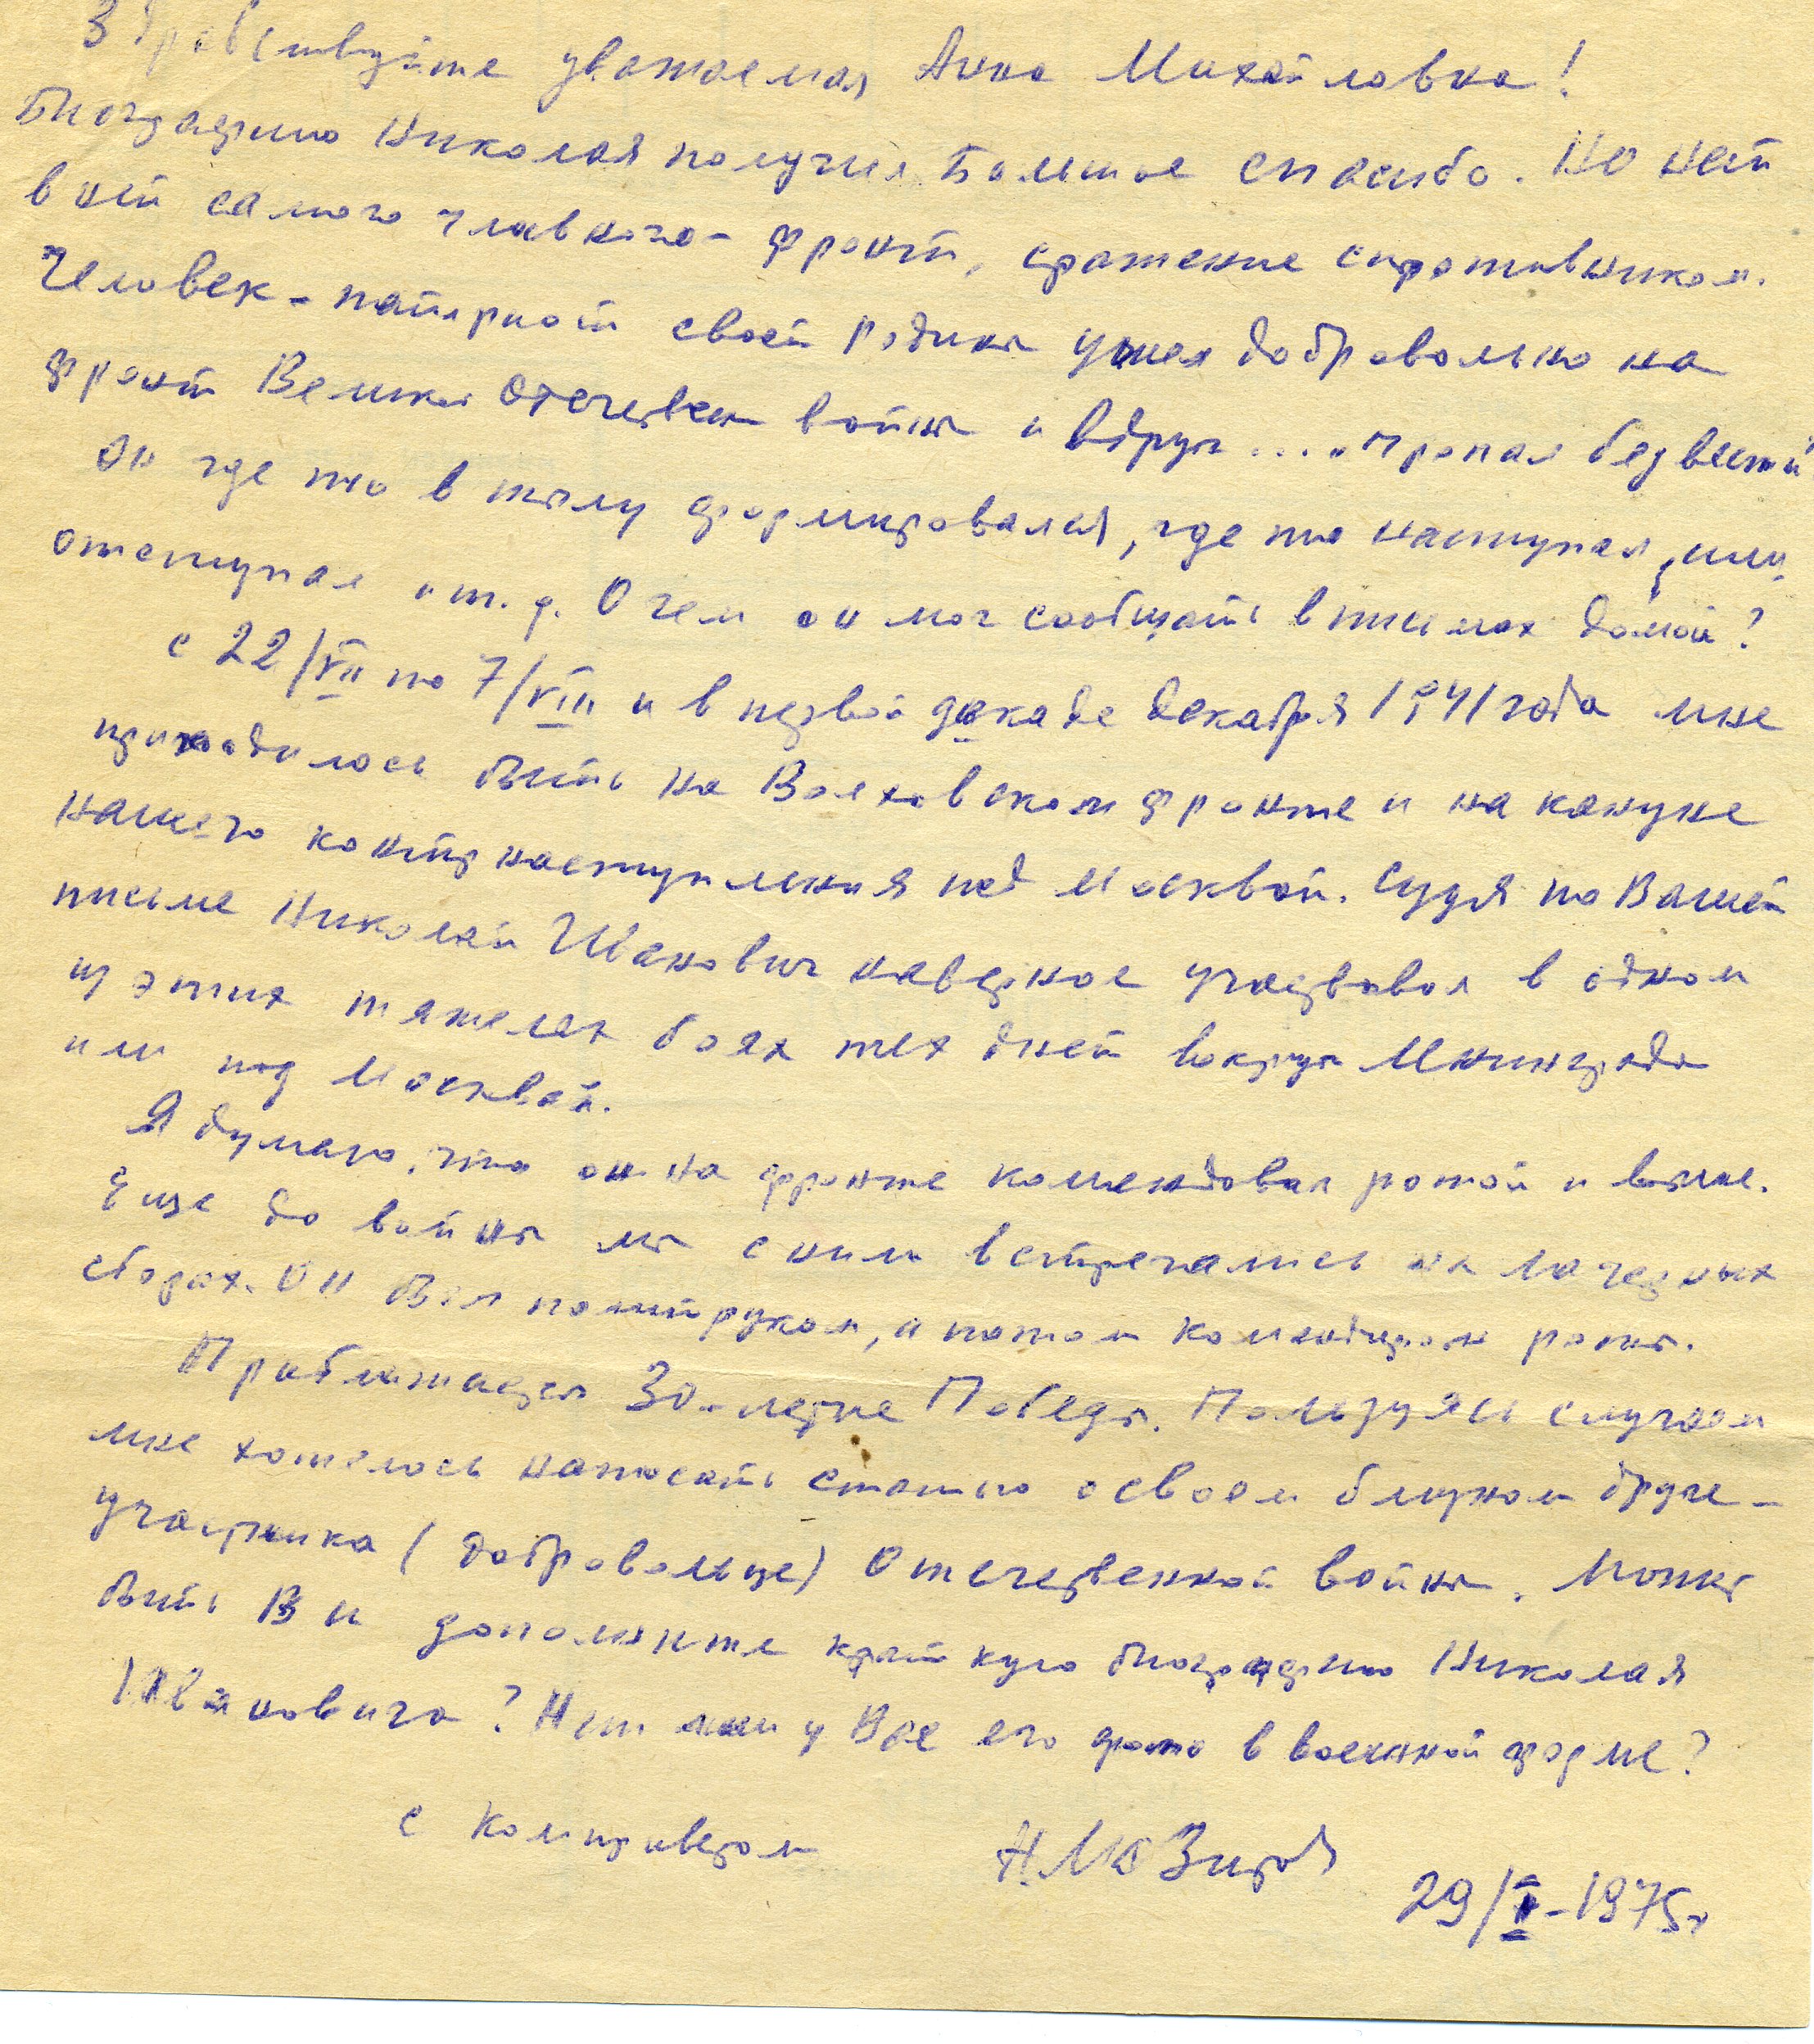 Здравствуйте уважаемая Анна Михайловна!
Биографию Николая получил. Большое спасибо. Но нет
в ней самого главного - фронт, сражение с противником.
Человек - патриот своей родины ушел добровольно на
фронт Велика Отечествен войны и вдруг .... "пропал без вести"
Он где то в тылу формировался, где то наступал, или
отступал и т. д. О чем он мог сообщать в письмах домой?
с 22/VII по 7/VIII и в первой декаде декабря 1941 года мне
приходилось быть на Волховском фронте и на кануне
нашего контрнаступления под Москвой. Судя по Вашей
письме Николай Иванович наверное участвовал в одном
из этих тяжелых боях тех дней вокруг Ленинграда
или под Москвой.
Я думаю, что он на фронте командовал ротой и выше.
Еще до войны мы с ним встречались на лагерных
сборах. Он был политруком, а потом командиром роты.
Приближается 30-летие Победы. Пользуясь случаем
мне хотелось написать статью о своем близком друге -
участника (добровольце) Отечественной войны. Может
быть Вы дополните краткую биографию Николая
Ивановича? Нет ли у Вас его фото в военной форме?
с Комприветом
29/I-1975г